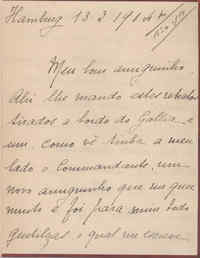 Hamburg 13 3 191
Meu bom amiguinho
Ahi lhe mando estes retratos
tirados a bordo do Gallia, e
um, como vê tinha a meu
lado o Commandante, um
novo amiguinho que me quer
muito e foi para mim todo
gentilezas, o qual me